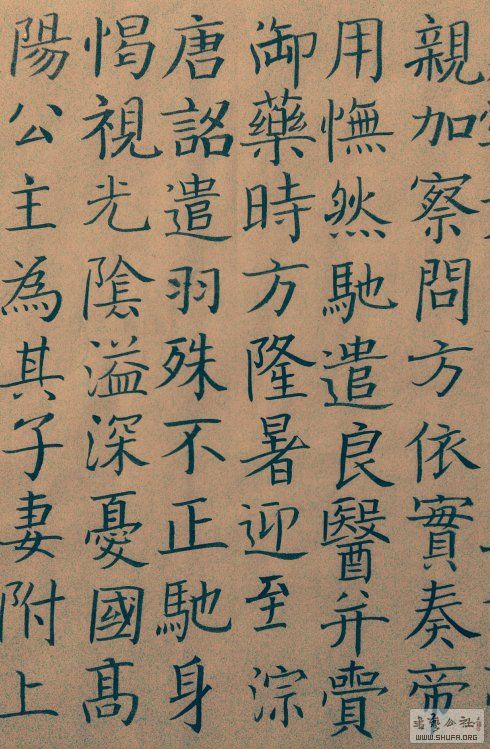 親加察問方依實奏帝
用憮然馳遣良醫并賷
御藥時方隆暑迎至淙
唐詺遣羽殊不正馳身
愒視光陰溢深憂國髙
陽公主為其子妻附上
WWW.SHUFA.ORG